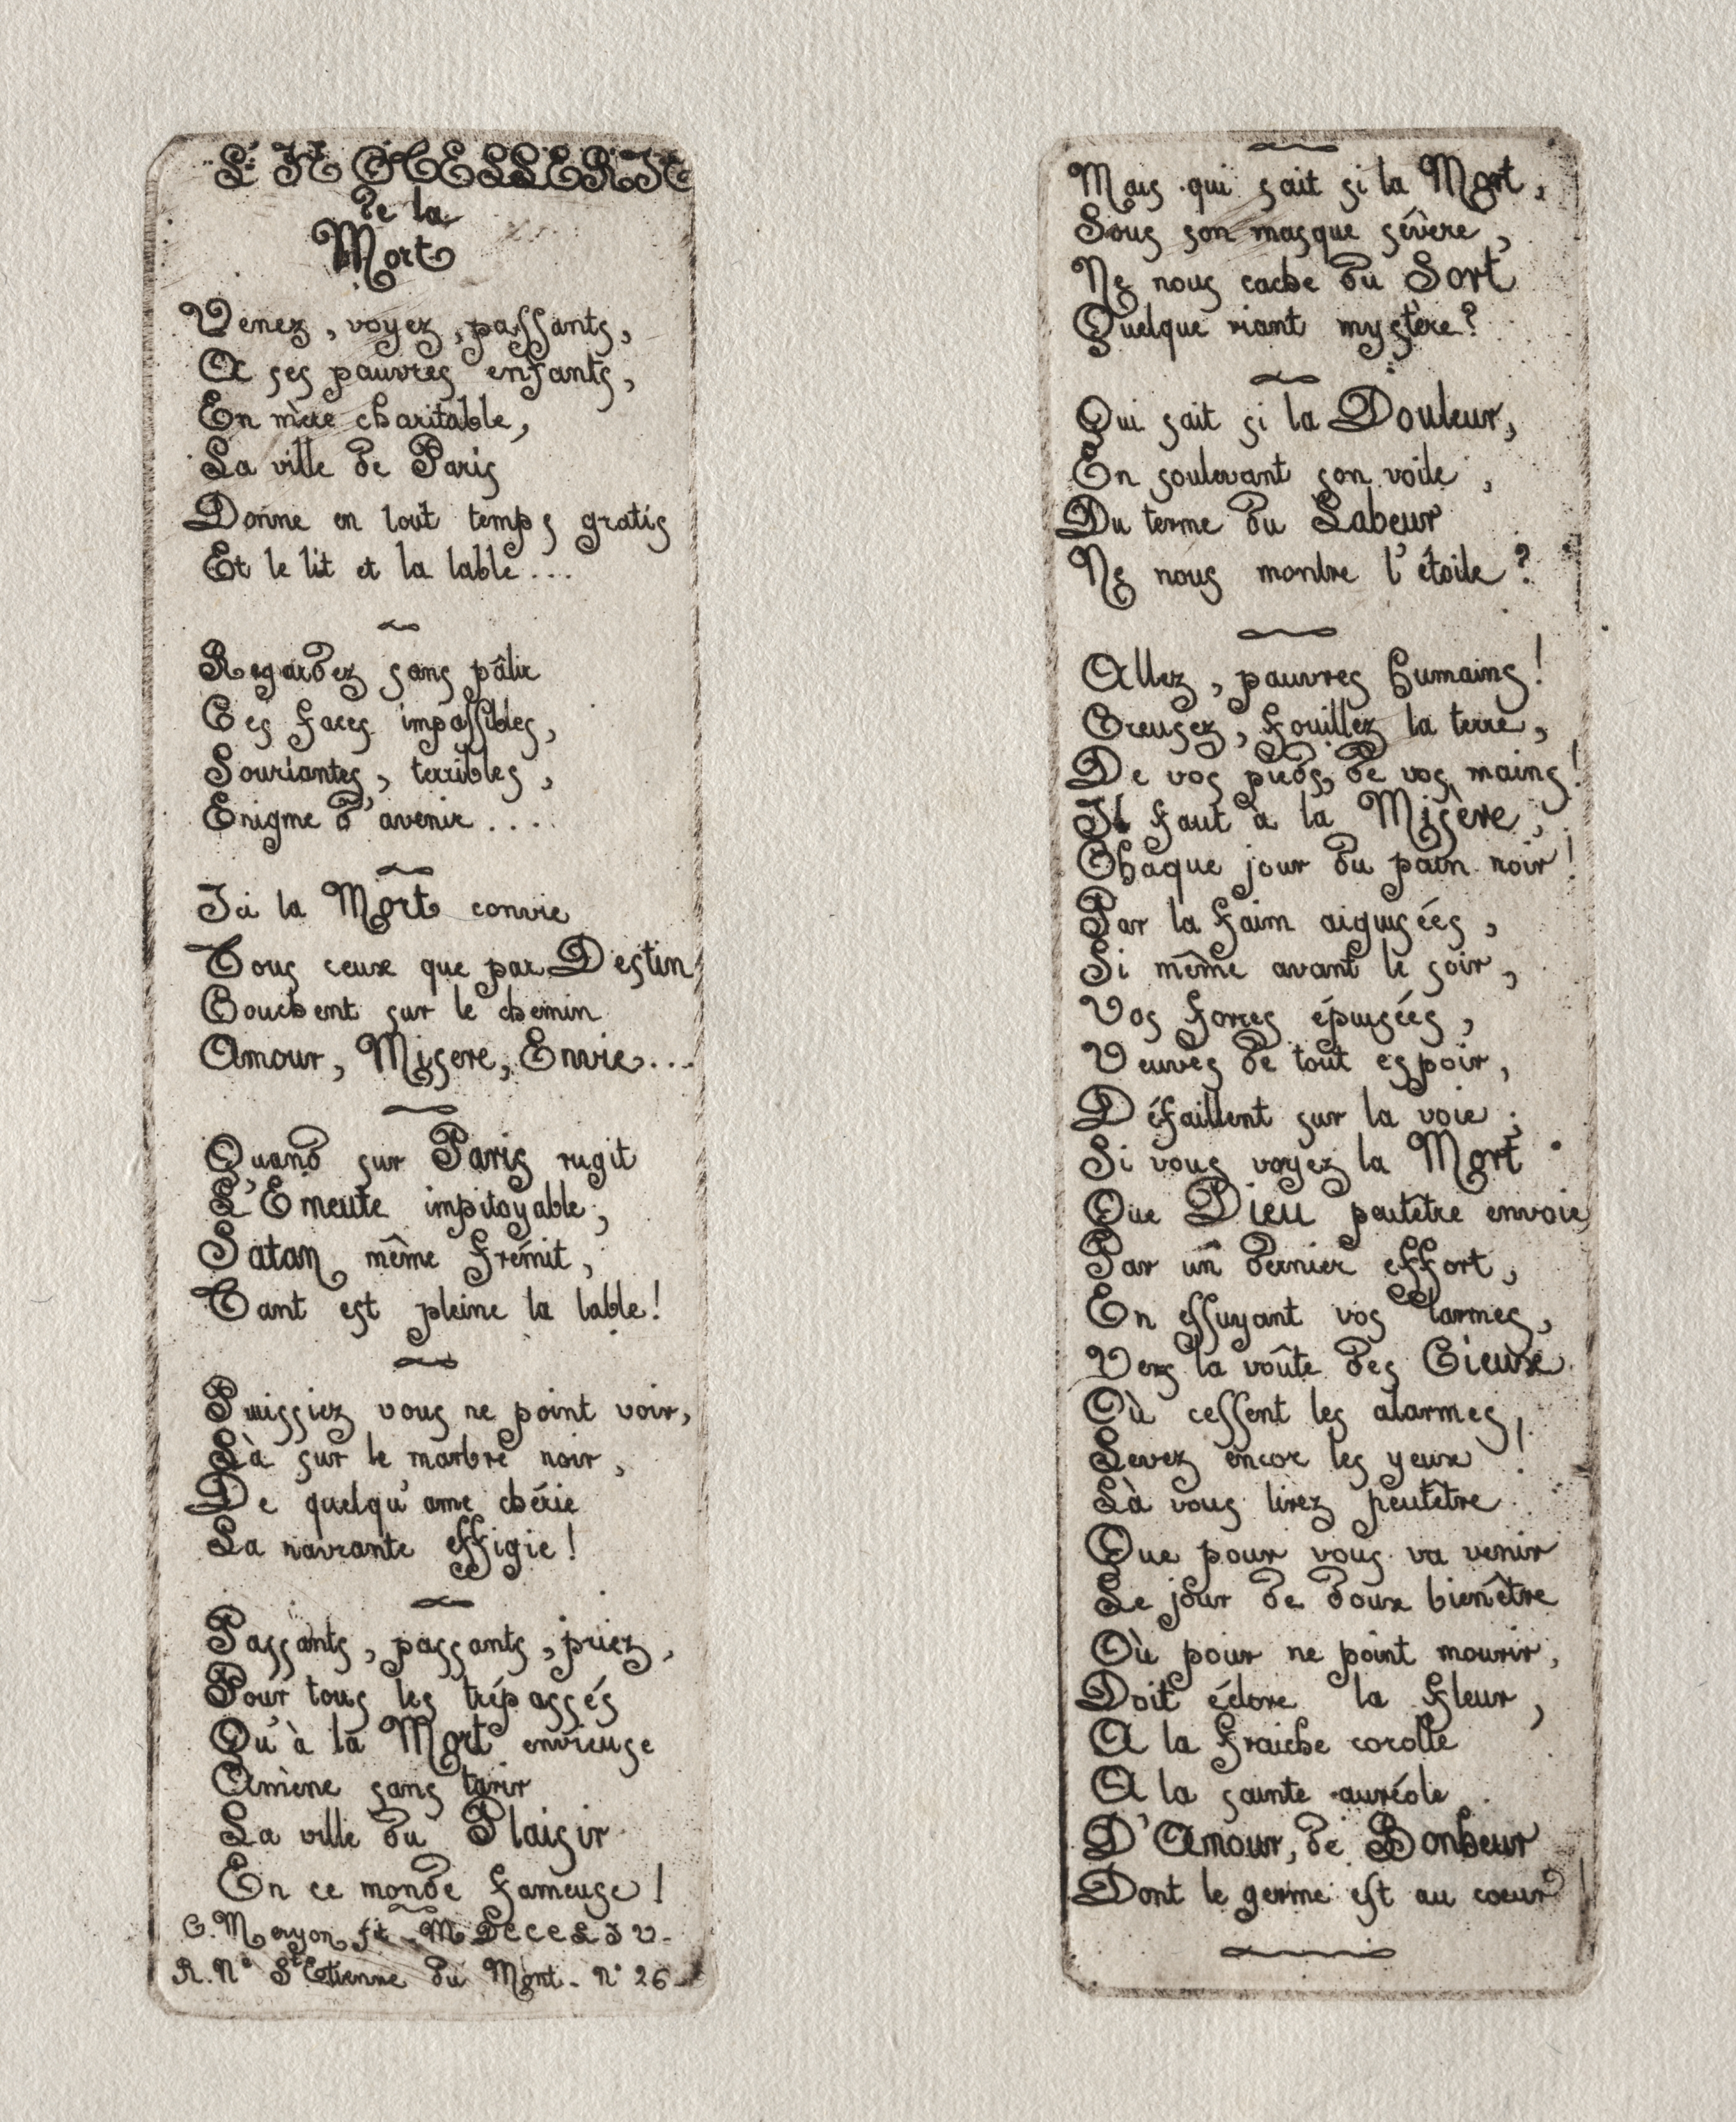 L'HOTELLERIE
de la
Mort
Venez, voyez, passants,
A ses pauvres enfants,
En mère charitable,
La ville de Paris
Donne en tout temps gratis
Et le lit et la table...
Regardez sans pâlir
Ces faces impassibles,
Souriantes, terribles,
Enigme d'avenir....
Ici la Mort convie
Tous ceux que par Destin,
Couchent sur le chemin
Amour, Misere, Envie...
Quand sur Paris rugit
L'Emeute impitoyable,
Satan même frémit,
Tant est pleine la table!
Puissiez vous ne point voir,
Là sur le marbre noir,
De quelqu'ame chérie
La navrante effigie!
Passants, passants, priez,
Pour tous les trépassés
Qu'à la Mort envieuse
Amène sans tarir
La ville du Plaisir
En ce monde fameuse!
C. Meryon ft - MDCCCLIV-
R. Ne St Etienne du Mont - No 26-
Mais qui sait si la Mort,
Sous son masque sévère,
Ne nous cache du Sort
Quelque riant mystère?
Qui sait si la Douleur,
En soulevant son voile,
Du terme du Labeur
Ne nous montre l'étoile?
Allez, pauvres humains!
Creusez, fouillez la terre,
De vos pieds, de vos mains!
Il faut à la Misère,
Chaque jour du pain noir!
Par la faim aiguisées,
Si même avant le soir,
Vos forces épuisées,
Veuves de tout espoir,
Défaillent sur la voie;
Si vous voyez la Mort
Que Dieu peutêtre envoie,
Par un dernier effort,
En essuyant vos larmes,
Vers la voûte des Cieux
Où cessent les alarmes,
Levez encor les yeux!
Là vous lirez peutêtre
Que pour vous va venir
Le jour de doux bienêtre
Où pour ne point mourir,
Doit éclore la fleur,
A la fraiche corolle
A la sainte auréole
D'Amour, de Bonheur
Dont le germe est au coeur!